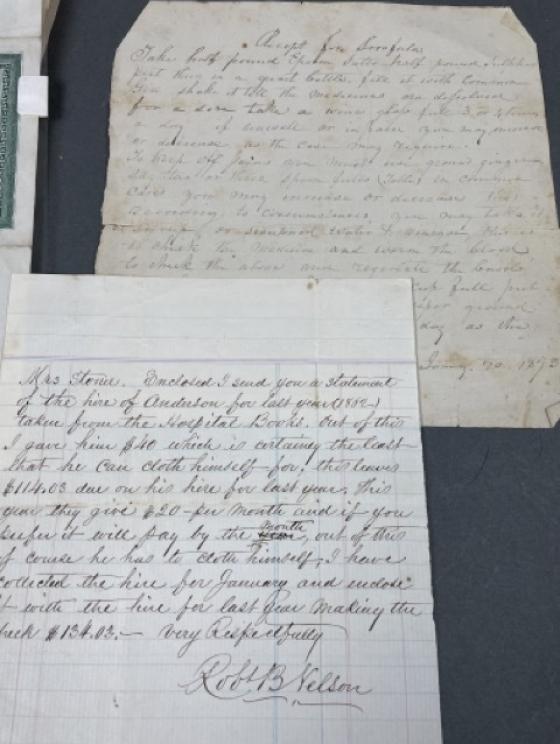 Receipt for Scrofula
Take half pound Epsom Salts half pound
put them in a quart bottle, fill it with common
Gin shake it till the medicines are dissolved
for a dose take a wine glass full 3 or 4 times
a day if
or decrease as the case may require.
To keep off you must use ground ginger
two or three spoon fulls (Table) in common
cases you may increase or decrease this
according to circumstances, you may take it
in syrup, or sweetened water &
to check the medicine and warm the blood
to check the above and regulate the bowels
cup full put
ground
day as the
Jany. 20. 1873
Mrs Stoner. Enclosed I send you a statement
of the hire of Anderson for last year (1862-)
taken from the Hospital Books. out of this
I gave him $40 which is certainly the least
that he can cloth himself for; this leaves
$114.03 due on his hire for last year. This
year they give $20- per Month and if you
prefer it will pay by the month, out of this
of course he has to cloth himself, I have
collected the hire for January and enclose
it with the hire for last year making the
check $134.03.— Very Respectfully
Robt B Nelson